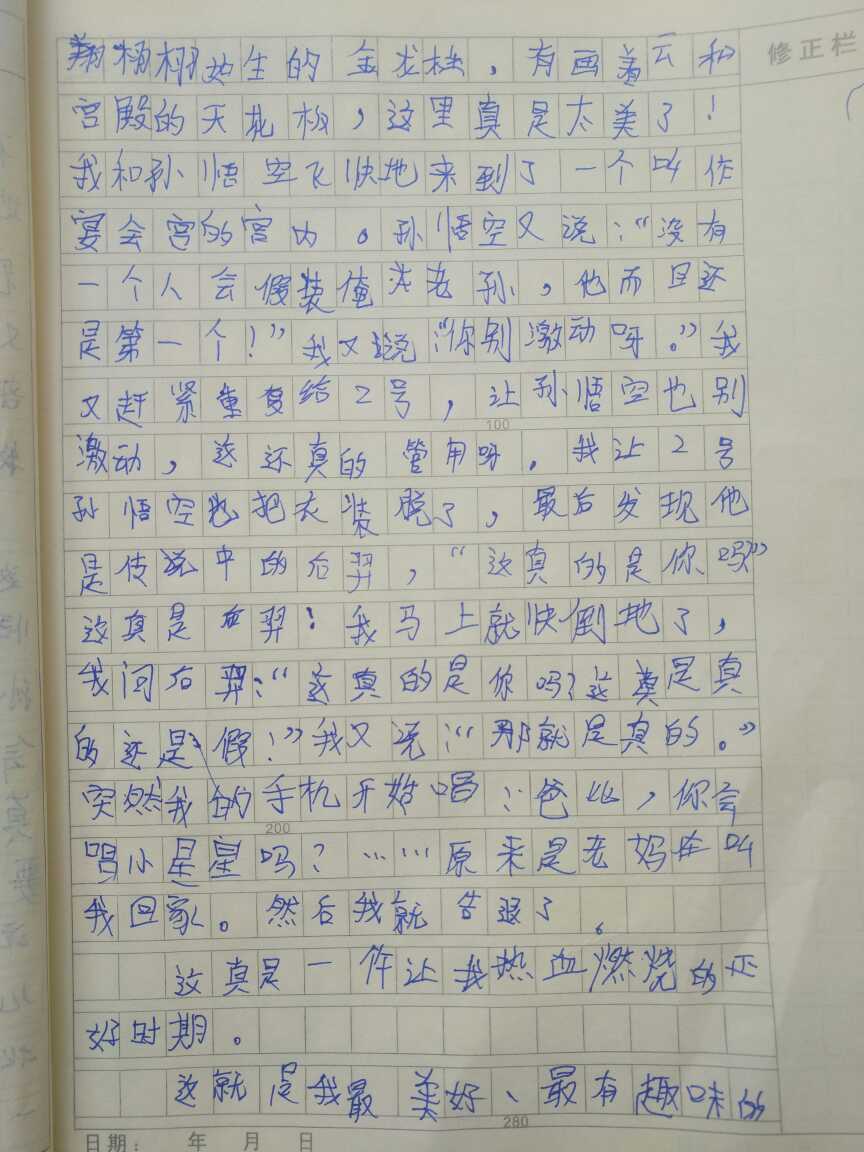 修正栏
翔栩栩如生的金龙柱，有画着云和
宫殿的天花板，这里真是太美了！
我和孙悟空飞快地来到了一个叫作
宴会宫的宫内。孙悟空又说：“没有
一个人会假装俺老孙，他而且还
是第一个！”我又说：“你别激动呀。”我
又赶紧重复给2号，让孙悟空也别
100
激动，这还真的管用呀。我让2号
孙悟空也把衣装脱了，最后发现他
是传说中的后羿，“这真的是你吗”
这真是后羿！我马上就快倒地了，
我问后羿：“这真的是你吗？这真是真
的还是假！”我又说：“那就是真的。”
突然我的手机开始唱：爸比，你会
200
唱小星星吗？……原来是老妈在叫
我回家。然后我就告退了。
这真是一件让我热血燃烧的还
好时期。
这就是我最美好、最有趣味的
280
日期： 年 月 日